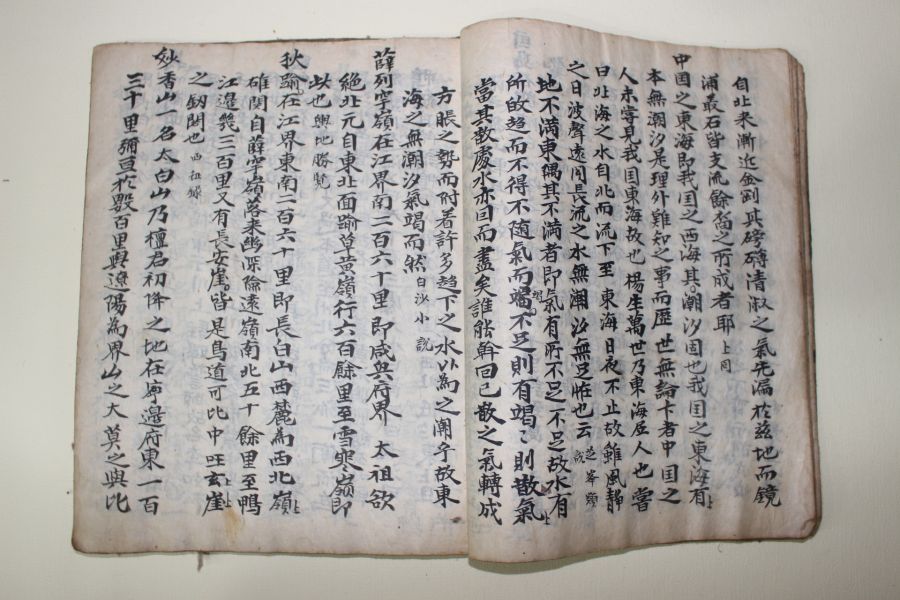 自北來漸近金剛其磅礴清淑之氣先漏於玆地而鏡
浦叢石皆支流餘裔之所成者耶 上同
中国之東海即我国之西海其潮汐固也我国之東海有
本無潮汐是理外難知之事而歷世無論卞者中国之
人未嘗見我国東海故也 楊生萬世乃東海居人也嘗
曰北海之水自北而流下至東海日夜不止故雖風靜
之日波聲遠聞長流之水無潮汐無足恠也云 芝峯類說
地不滿東偶其不滿者即氣有所不足不足故水有
所的趍而不得不随氣而竭不足則有竭竭則散氣
當其散處水亦曰而盡矣誰能斡回已散之氣轉成
方脹之勢而附着許多趍下之水以為之潮乎故東
海之無潮汐氣竭而然 白沙小説
薛列罕嶺在江界南二百六十里即咸興府界 太祖欲
絶北元自東北面踰草黄嶺行六百餘里至雪寒嶺即
此也 輿地勝覽
秋踰在江界東南二百六十里即長白山西麓為西北嶺
確関自薛罕嶺落來深險遠嶺南北五十餘里至鴨
江邊幾三百里又有長安崖皆是鳥道可比中旺玄崖
之釼関也 西征錄
妙香山一名太白山乃檀君初降之地在寧邊府東一百
三十里彌亘於數百里與遼陽為界山之大莫之與比